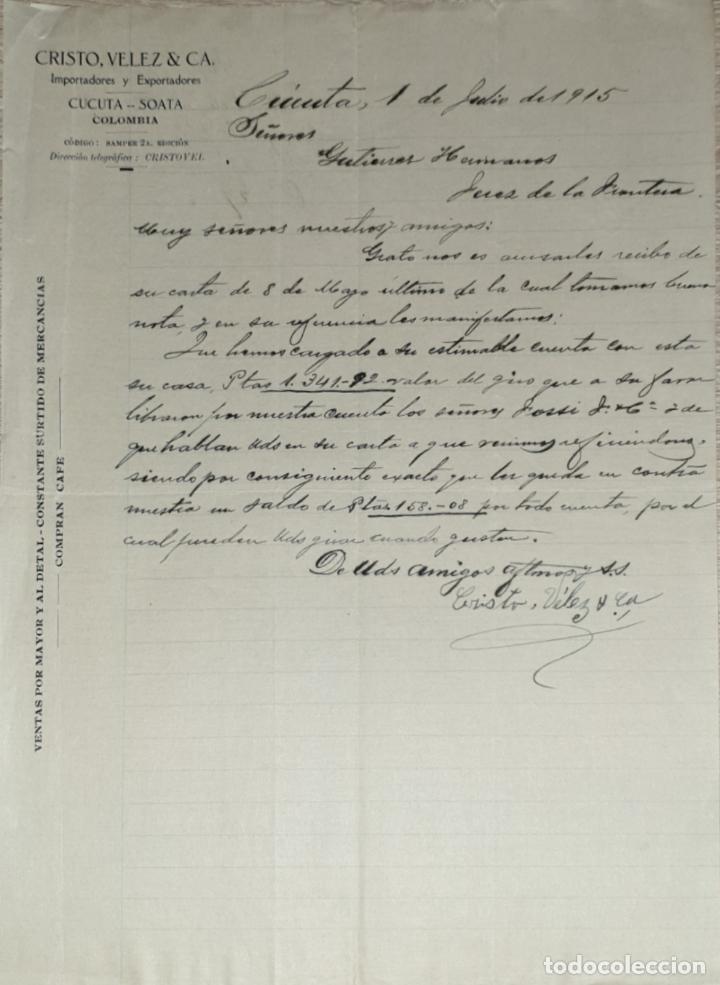 CRISTO, VELEZ & CA.
Importadores y Exportadores
CUCUTA -- SOATA
COLOMBIA
CÓDIGO: SAMPER 2A. EDICIÓN
Dirección telegráfica: CRISTOVEL
Cúcuta, 1 de Julio de 1915
Señores
Gutierrez Hermanos
Jerez de la Frontera.
Muy señores nuestros y amigos:
Grato nos es acusarles recibo de
su carta de 8 de Mayo último de la cual tomamos buena
nota, y en su referencia les manifestamos:
Que hemos cargado a su estimable cuenta con esta
su casa, Ptas 1.341.-92 valor del giro que a su favor
libraron por nuestra cuenta los señores Fossi J. & Cª y de
que hablan Uds en su carta a que venimos refiriendonos,
siendo por consiguiente exacto que les queda en contra
nuestra un saldo de Ptas 158.-08 por todo cuenta, por el
cual pueden Uds girar cuando gusten.
De Uds amigos afmos y s.s.
Cristo, Vélez & Ca,
VENTAS POR MAYOR Y AL DETAL - CONSTANTE SURTIDO DE MERCANCIAS
COMPRAN CAFE
todocoleccion